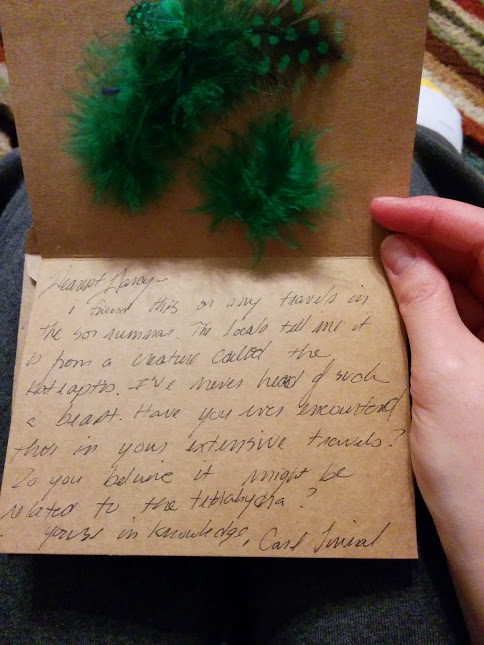 Dearest Darcy-
i found this on my travels in
the . The locals tell me it
is from a creature called the
. I've never heard of such
a beast. Have you ever encountered
this in your extensive travels?
Do you believe it might be
related to the tetrahydra?
Yours in knowledge, Carl